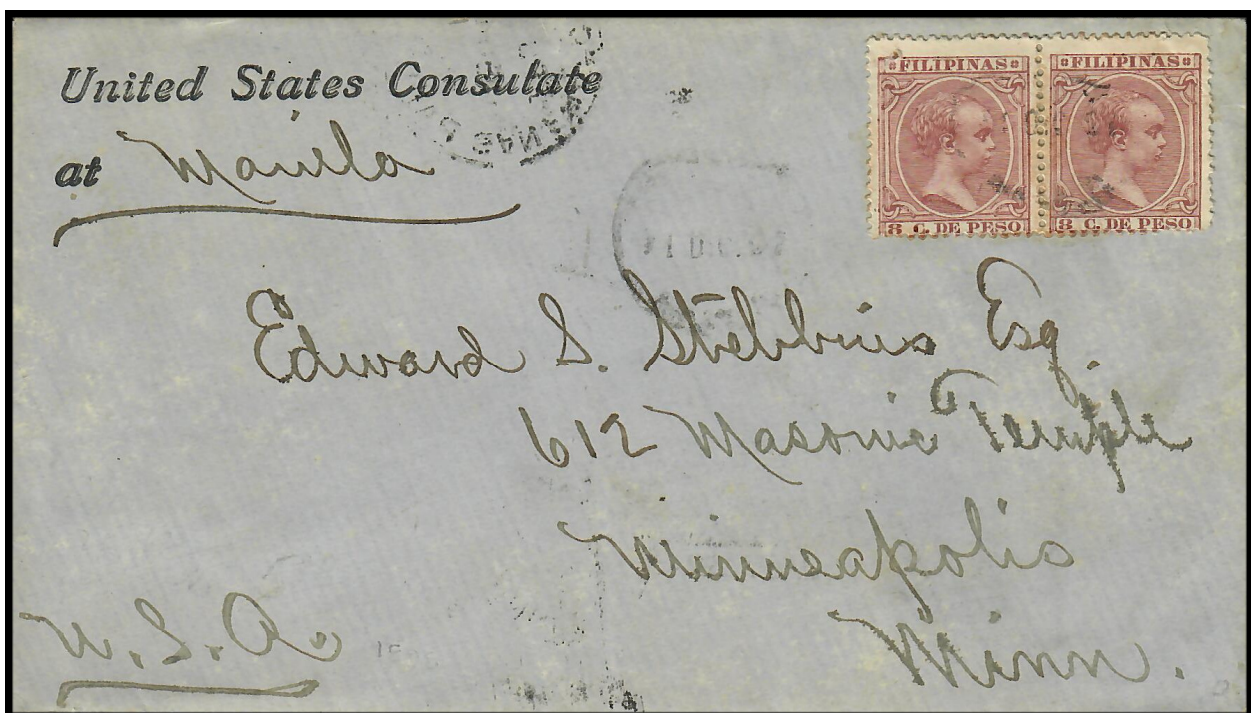 United States Consulate
at Manila
FILIPINAS
8 C. DE PESO
FILIPINAS
8 C. DE PESO
Edward S. Stebbins Esq.
612 Masonic Temple
Minneapolis
Minn.
U.S.A.